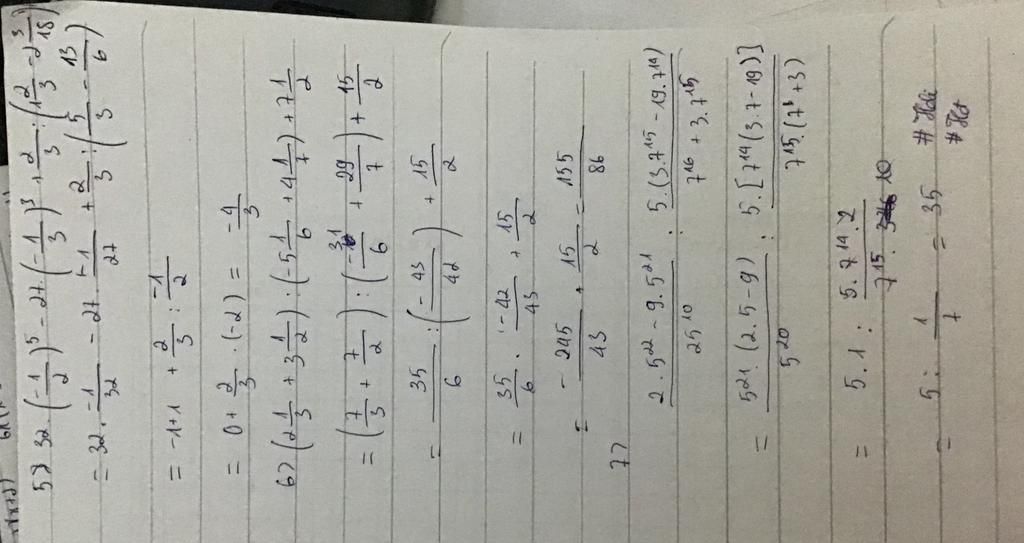 5) 32.(-1/2)^5 - 27.(-1/3)^3 + 2/3 : (1 2/3 - 2 3/18)
= 32. -1/32 - 27. -1/27 + 2/3 : (5/3 - 13/6)
= -1+1 + 2/3 : -1/2
= 0 + 2/3 . (-2) = -4/3
6) (2 1/3 + 3 1/2) : (-5 1/6 + 4 1/7) + 7 1/2
= (7/3 + 7/2) : (-31/6 + 29/7) + 15/2
= 35/6 : (-43/42) + 15/2
= 35/6 . -42/43 + 15/2
= -245/43 + 15/2 = 155/86
7) 2.5^22 - 9.5^21 / 25^10 : 5.(3.7^15 - 19.7^14) / 7^16 + 3.7^15
= 5^21.(2.5-9) / 5^20 : 5.[7^14(3.7-19)] / 7^15.(7^1+3)
= 5.1 : 5.7^14.2 / 7^15. 10
= 5 : 1/7 = 35 # Hdi
# Het